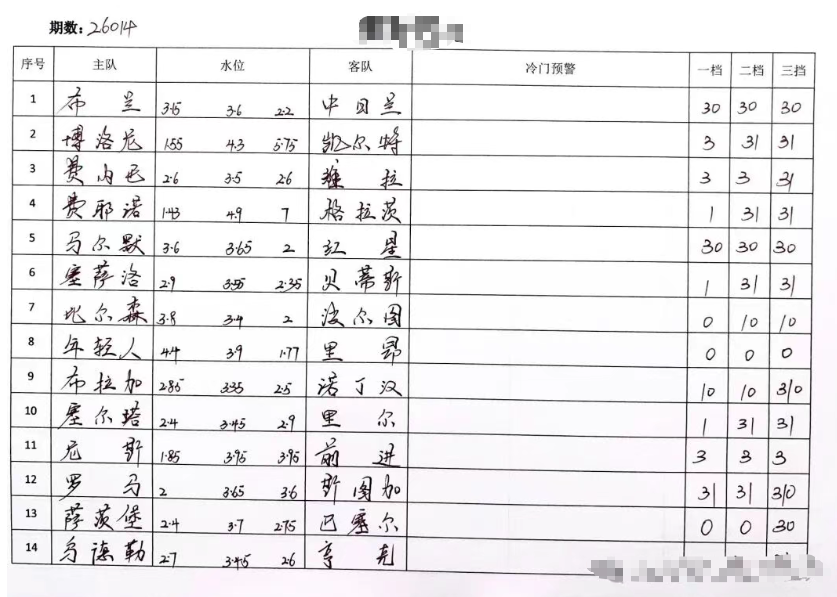 期数: 26014
序号 主队 水位 客队 冷门预警 一档 二档 三挡
1 布兰 3.15 3.6 2.2 中日兰 30 30 30
2 博洛尼 1.55 4.3 5.75 凯尔特 3 31 31
3 费内巴 2.6 3.5 2.6 维拉 3 3 31
4 费耶诺 1.43 4.9 7 格拉茨 1 31 31
5 马尔默 3.6 3.65 2 红星 30 30 30
6 塞萨洛 2.9 3.55 2.35 贝蒂斯 1 31 31
7 比尔森 3.8 3.4 2 波尔图 0 10 10
8 年轻人 4.4 3.9 1.77 里昂 0 0 0
9 布拉加 2.85 3.35 2.5 诺丁汉 10 10 310
10 塞尔塔 2.4 3.45 2.9 里尔 1 31 31
11 尼斯 1.85 3.95 3.95 前进 3 3 3
12 罗马 2 3.65 3.6 斯图加 31 31 310
13 萨茨堡 2.4 3.7 2.75 巴塞尔 0 0 30
14 乌德勒 2.7 3.45 2.6 亨克